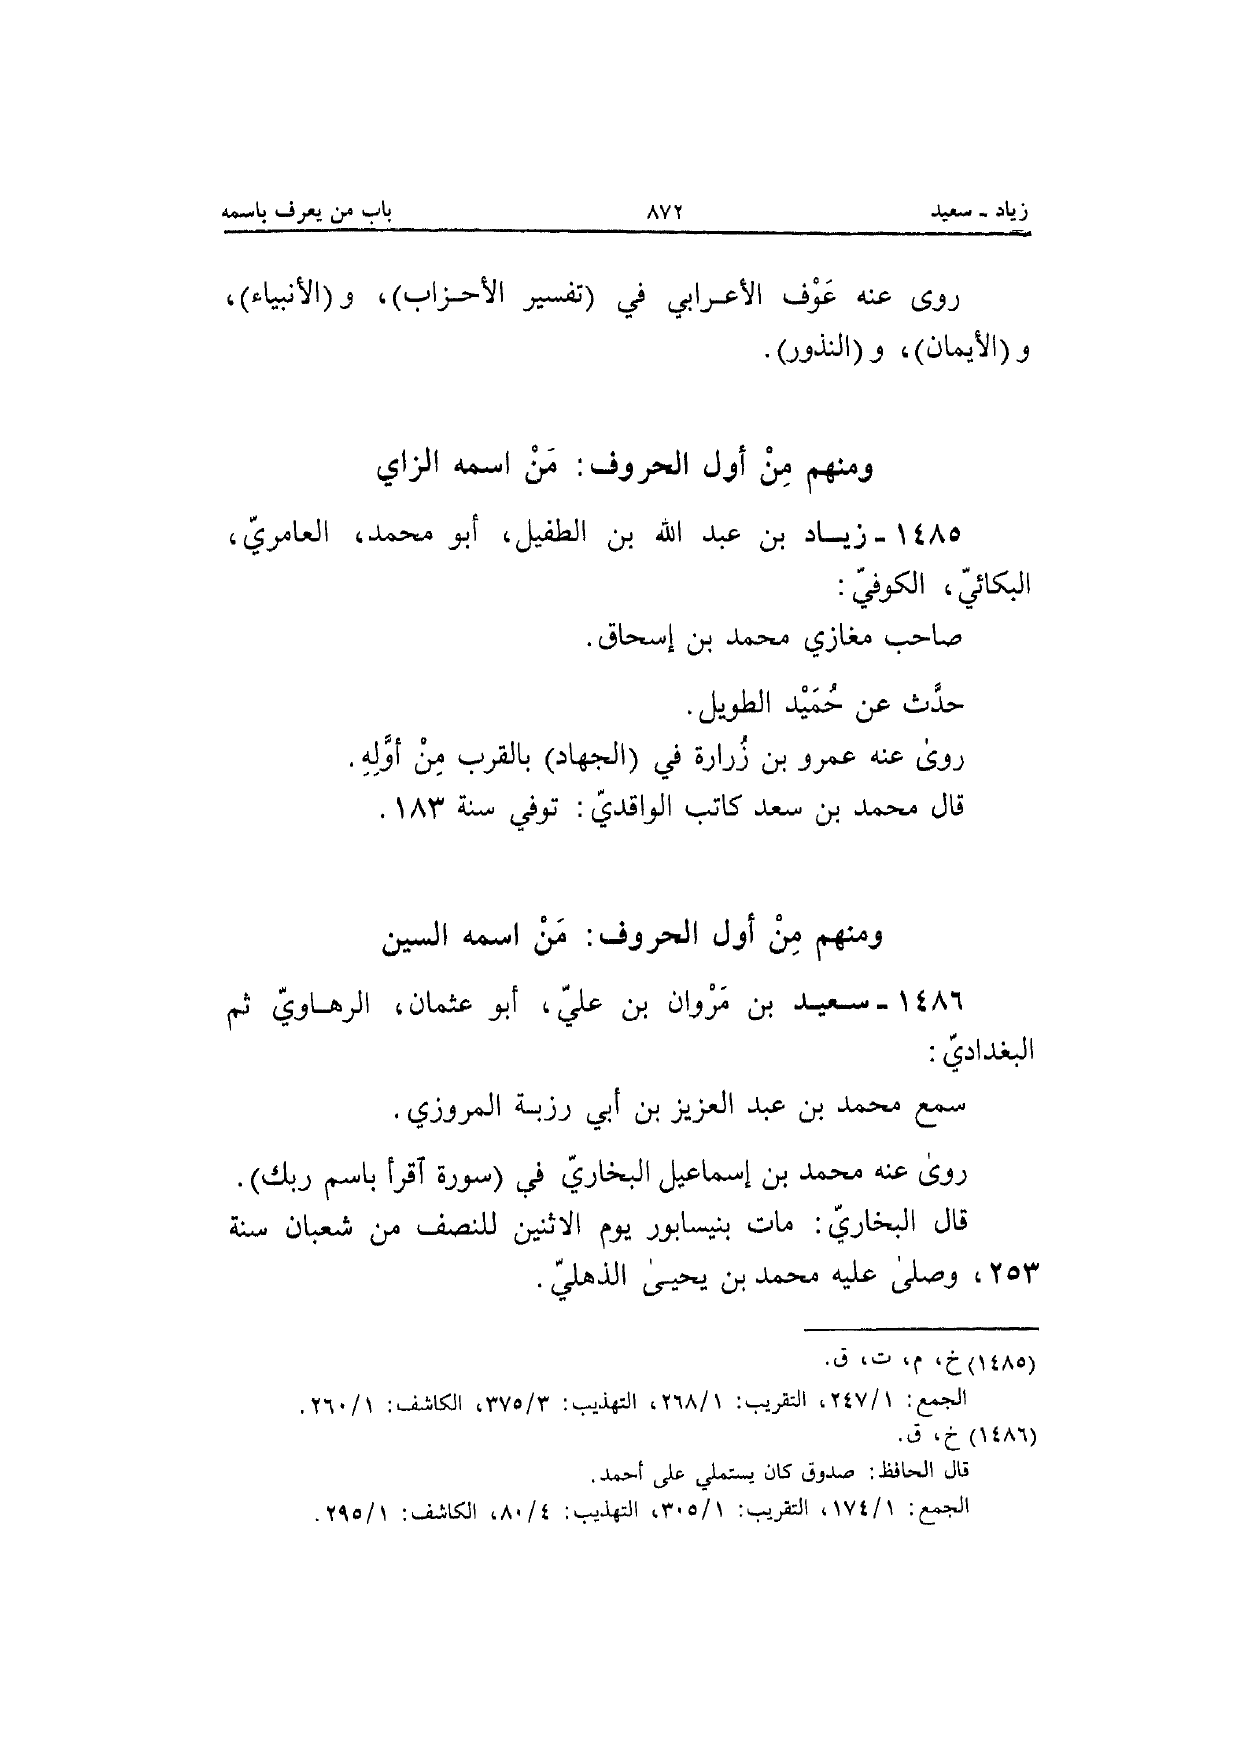 زياد ـ سعيد ٨٧٢ باب من يعرف باسمه
روى عنه عَوْف الأعـرابي في (تفسير الأحـزاب)، و (الأنبياء)،
و (الأيمان)، و (النذور).
ومنهم مِنْ أول الحروف: مَنْ اسمه الزاي
١٤٨٥ ـ زيـاد بن عبد الله بن الطفيل، أبو محمد، العامريّ،
البكائيّ، الكوفيّ:
صاحب مغازي محمد بن إسحاق.
حدَّث عن حُمَيْد الطويل.
روىٰ عنه عمرو بن زُرارة في (الجهاد) بالقرب مِنْ أوَّلِهِ.
قال محمد بن سعد كاتب الواقديّ: توفي سنة ١٨٣.
ومنهم مِنْ أول الحروف: مَنْ اسمه السين
١٤٨٦ ـ سـعيـد بن مَرْوان بن عليّ، أبو عثمان، الرهـاويّ ثم
البغداديّ:
سمع محمد بن عبد العزيز بن أبي رزبـة المروزي.
روىٰ عنه محمد بن إسماعيل البخاريّ في (سورة آقرأ باسم ربك).
قال البخاريّ: مات بنيسابور يوم الاثنين للنصف من شعبان سنة
٢٥٣، وصلىٰ عليه محمد بن يحيىٰ الذهليّ.
(١٤٨٥) خ، م، ت، ق.
الجمع: ٢٤٧/١، التقريب: ٢٦٨/١، التهذيب: ٣٧٥/٣، الكاشف: ٢٦٠/١.
(١٤٨٦) خ، ق.
قال الحافظ: صدوق كان يستملي على أحمد.
الجمع: ١٧٤/١، التقريب: ٣٠٥/١، التهذيب: ٨٠/٤، الكاشف: ٢٩٥/١.